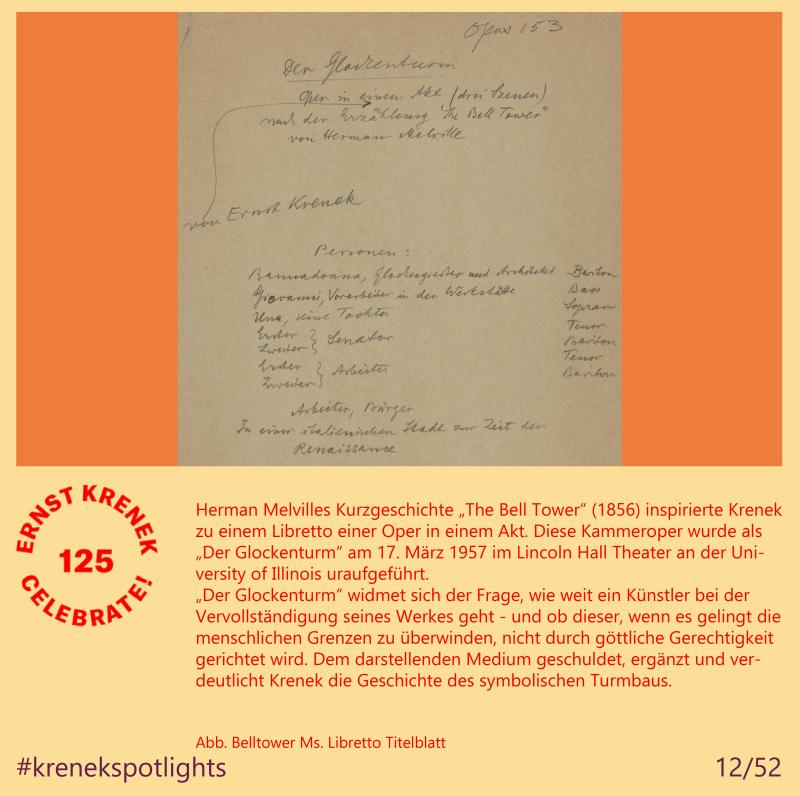 Opus 153
Der Glockenturm
Oper in einem Akt (drei Szenen)
nach der Erzählung "The Bell Tower"
von Herman Melville
von Ernst Krenek
Personen:
Bannadonna, Glockengiesser und Architekt Bariton
Giovanni, Vorarbeiter in der Werkstätte Bass
Una, seine Tochter Sopran
Erster } Senator Tenor
Zweiter } Bariton
Erster } Arbeiter Tenor
Zweiter } Bariton
Arbeiter, Bürger
In einer italienischen Stadt zur Zeit der
Renaissance
ERNST KRENEK
125
CELEBRATE!
Herman Melvilles Kurzgeschichte „The Bell Tower“ (1856) inspirierte Krenek
zu einem Libretto einer Oper in einem Akt. Diese Kammeroper wurde als
„Der Glockenturm“ am 17. März 1957 im Lincoln Hall Theater an der Uni-
versity of Illinois uraufgeführt.
„Der Glockenturm“ widmet sich der Frage, wie weit ein Künstler bei der
Vervollständigung seines Werkes geht - und ob dieser, wenn es gelingt die
menschlichen Grenzen zu überwinden, nicht durch göttliche Gerechtigkeit
gerichtet wird. Dem darstellenden Medium geschuldet, ergänzt und ver-
deutlicht Krenek die Geschichte des symbolischen Turmbaus.
Abb. Belltower Ms. Libretto Titelblatt
#krenekspotlights
12/52